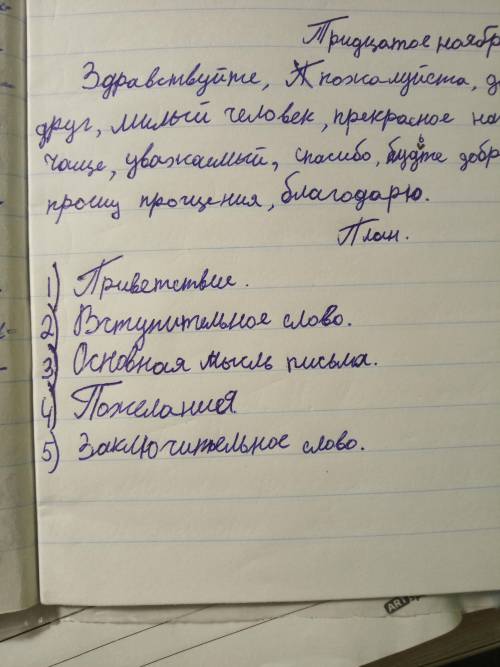 Тридцатое ноябр
Здравствуйте, пожалуйста, д
друг, милый человек, прекрасное на
чаще, уважаемый, спасибо, будьте добр
прошу прощения, благодарю.
План.
1) Приветствие.
2) Вступительное слово.
3) Основная мысль письма.
4) Пожелания
5) Заключительное слово.